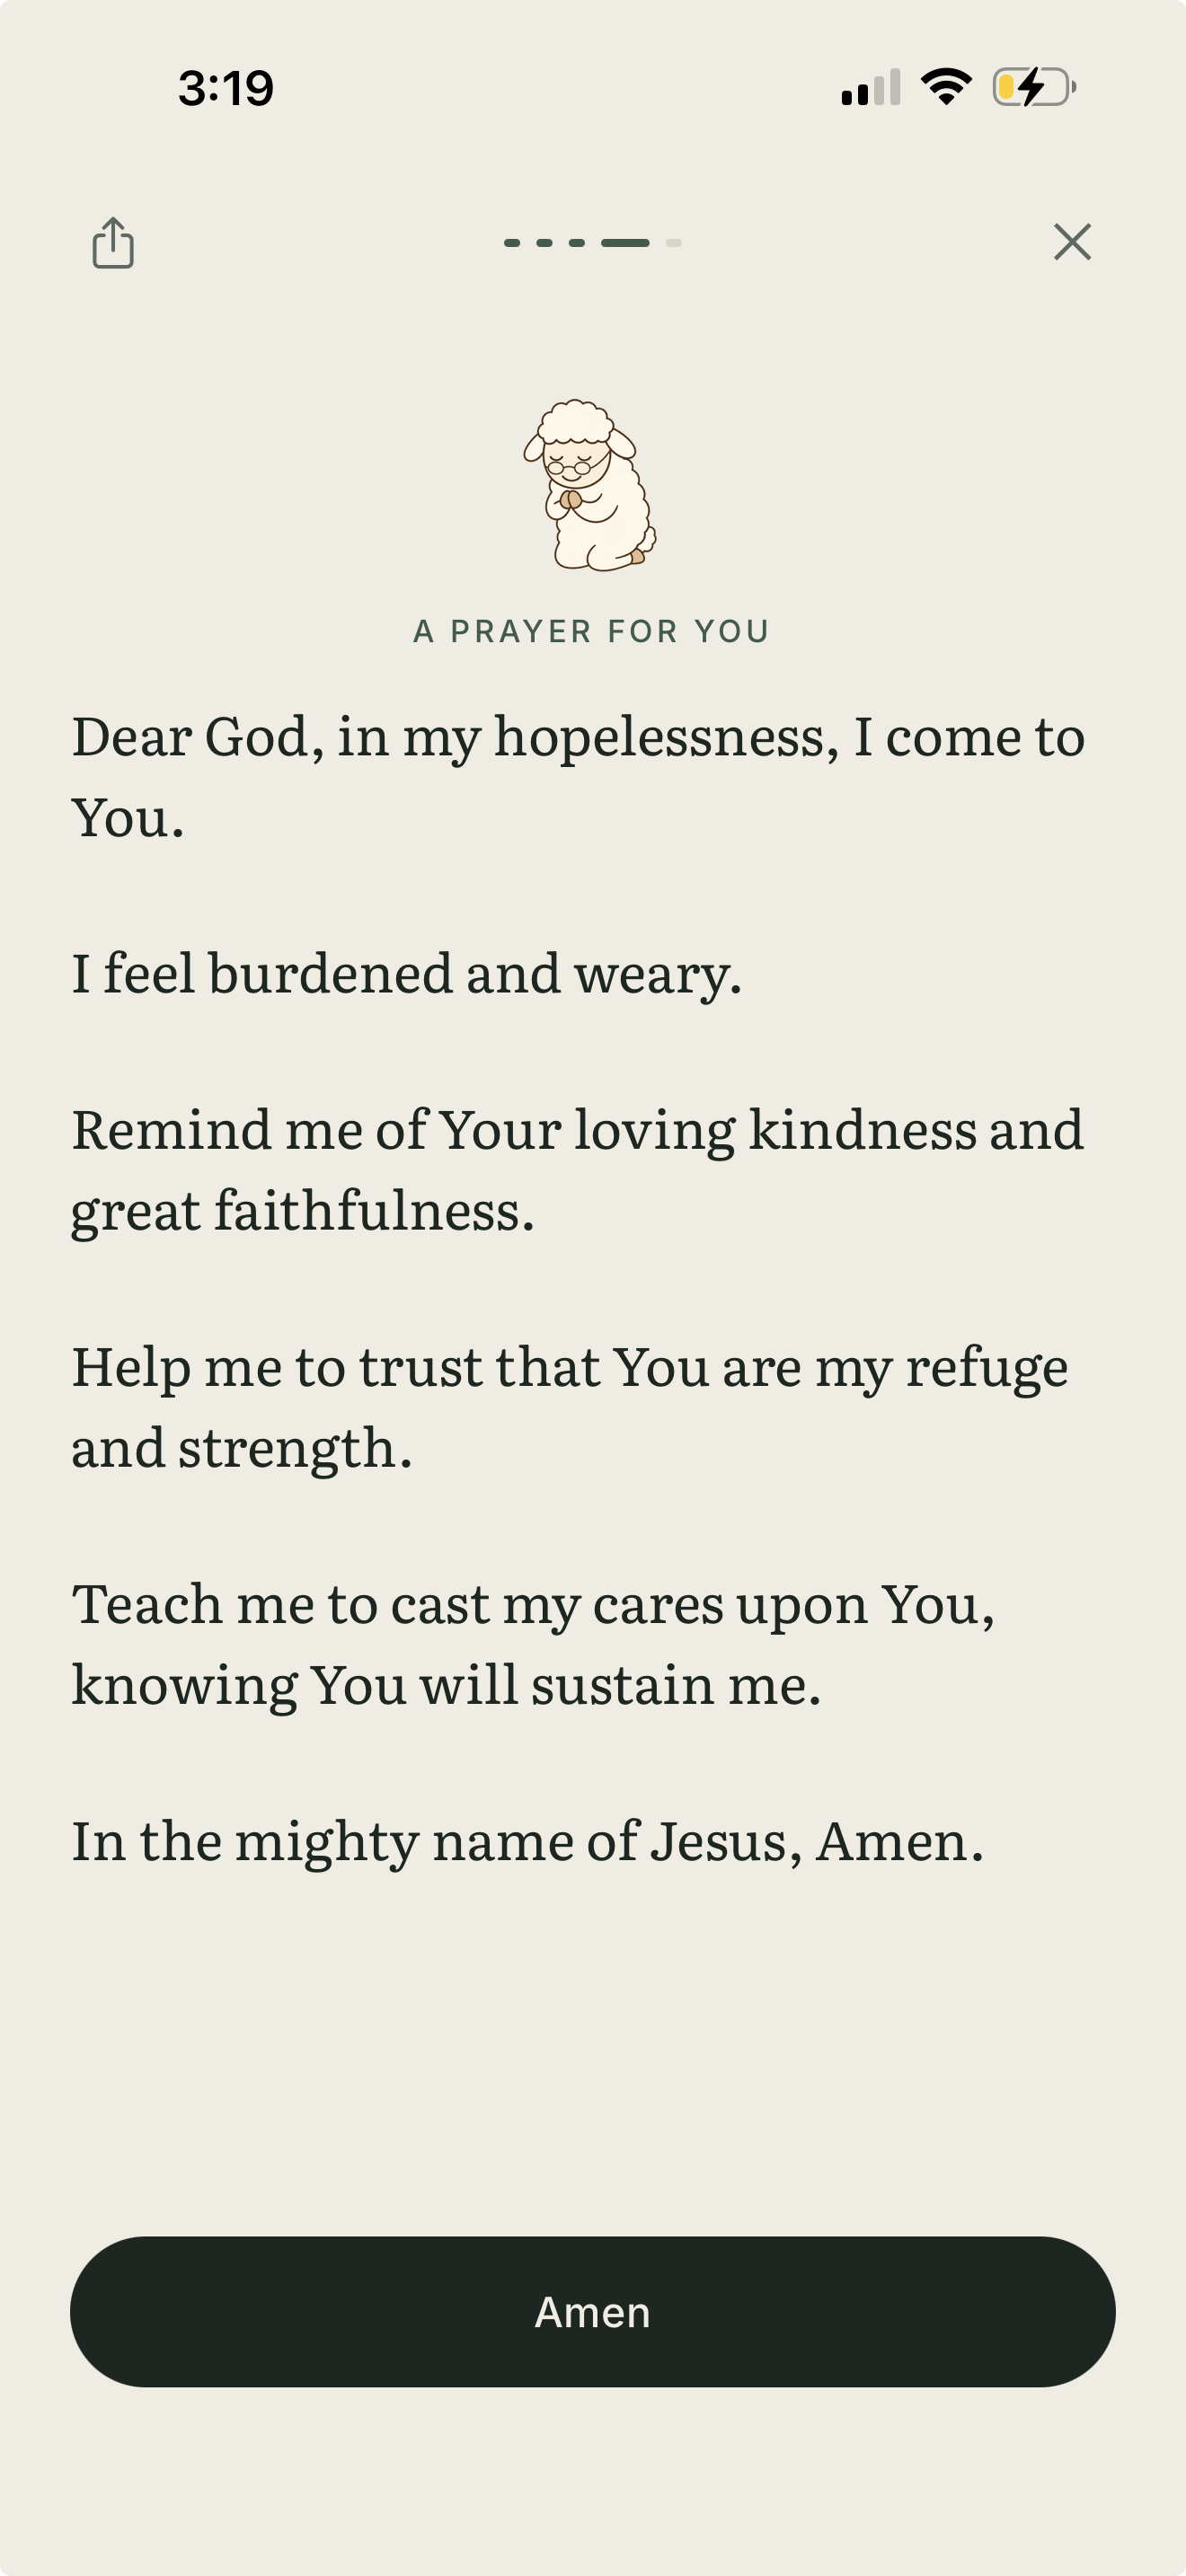 3:19
A PRAYER FOR YOU
Dear God, in my hopelessness, I come to
You.
I feel burdened and weary.
Remind me of Your loving kindness and
great faithfulness.
Help me to trust that You are my refuge
and strength.
Teach me to cast my cares upon You,
knowing You will sustain me.
In the mighty name of Jesus, Amen.
Amen